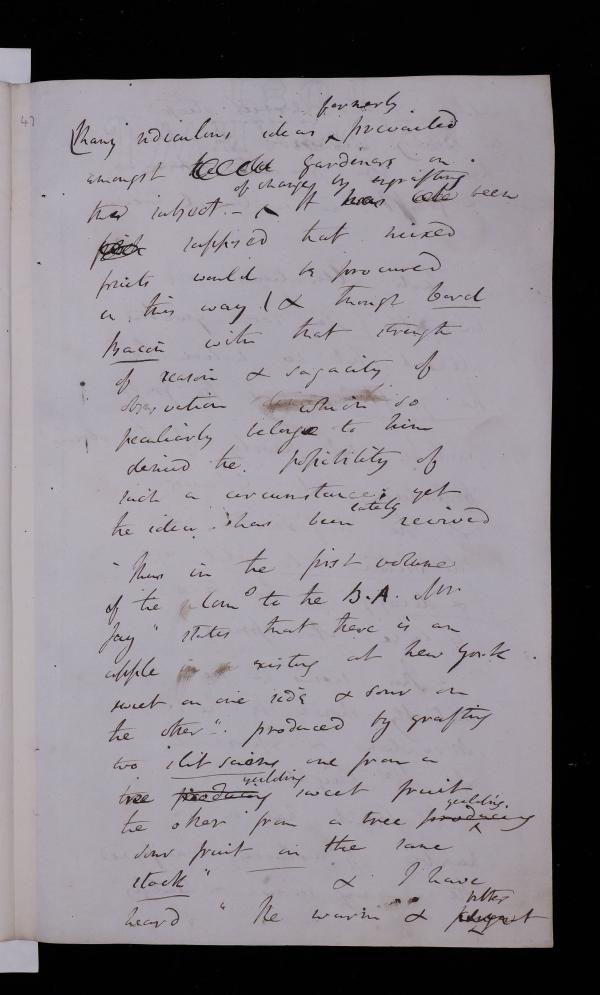 47
formerly
Many ridiculous ideas prevailed
amongst gardiners on
of changes by engrafting
this subject. - It has been
supposed that mixed
fruits would be procured
in this way & though Lord
Bacon with that strength
of reason & sagacity of
observation which so
peculiarly belongs to him
denied the possibility of
such a circumstance; yet
lately
the idea has been revived
Thus in the first volume
of the Com^s to the B.A. Mr
Jay " states that there is an
apple existing at New York.
sweet on one side & sour on
the other". produced by grafting
two slit scions one from a
yielding
tree producing sweet fruit
yielding.
the other from a tree producing
sour fruit on the same
stock" & I have
heard " the warm &